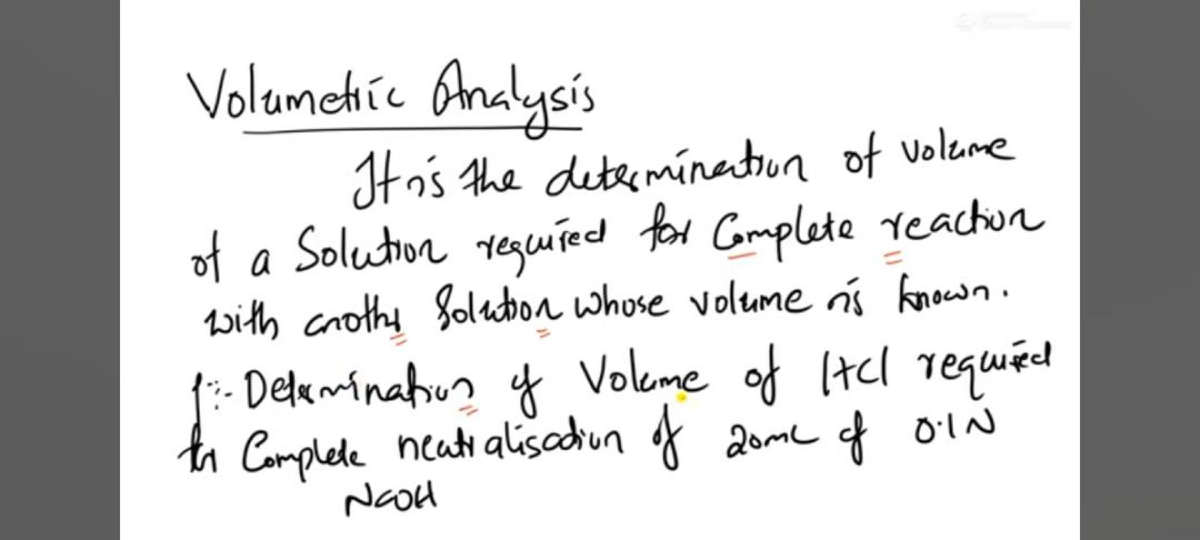 Volumetric Analysis
It is the determination of volume
of a Solution required for Complete reaction
with another Solution whose volume is known.
:- Determination of Volume of HCl required
for Complete neutralisation of 20mL of 0.1N
NaOH